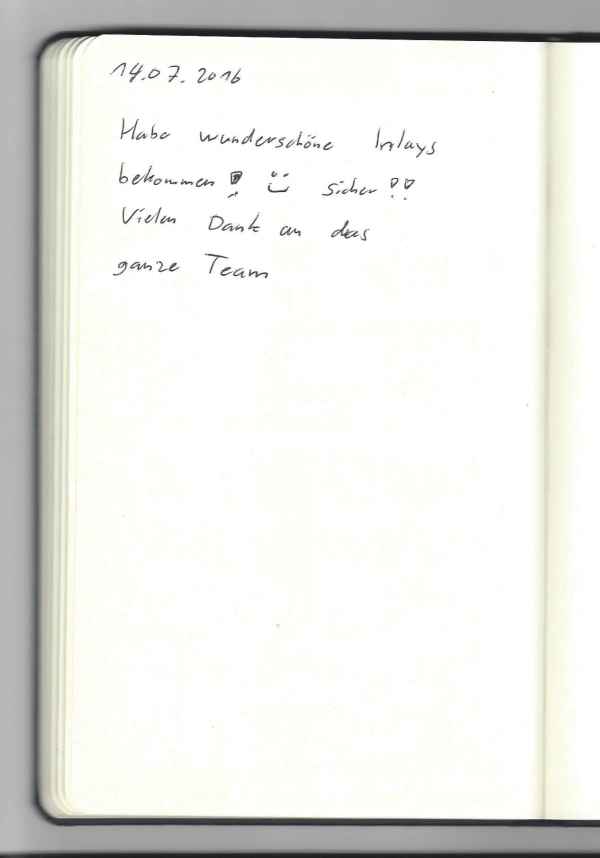 14.07.2016
Habe wunderschöne Inlays
bekommen! ü sicher!!
Vielen Dank an das
ganze Team